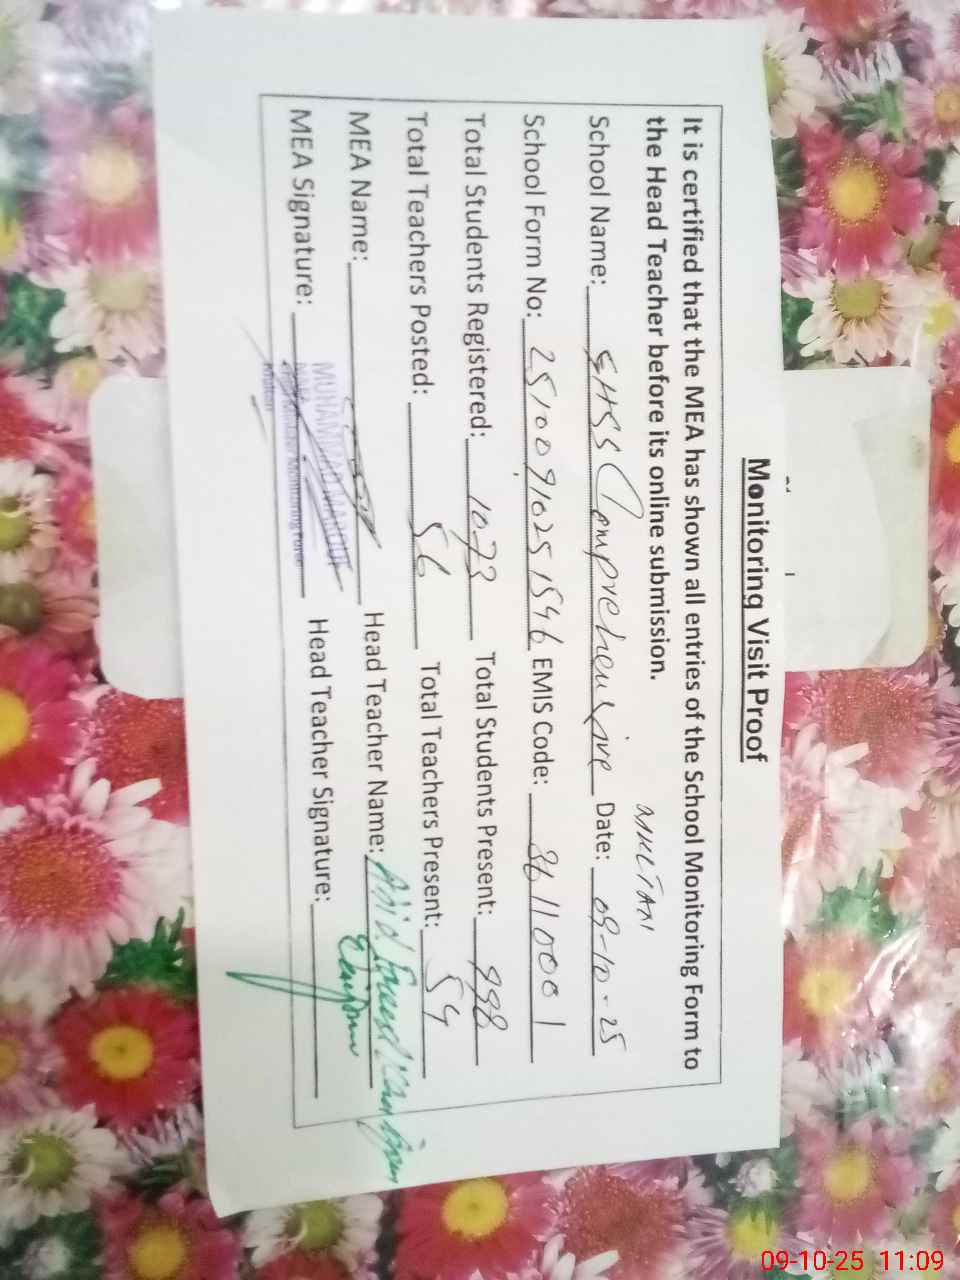 Monitoring Visit Proof
It is certified that the MEA has shown all entries of the School Monitoring Form to
the Head Teacher before its online submission.
MULTAN
School Name: GHSS Comprehensive Date: 09-10-25
School Form No: 25100910251546 EMIS Code: 36110001
Total Students Registered: 1073 Total Students Present: 998
Total Teachers Posted: 56 Total Teachers Present: 54
MEA Name: Head Teacher Name:
MEA Signature: MUHAMMAD Monitoring Head Teacher Signature:
Multan
09-10-25 11:09